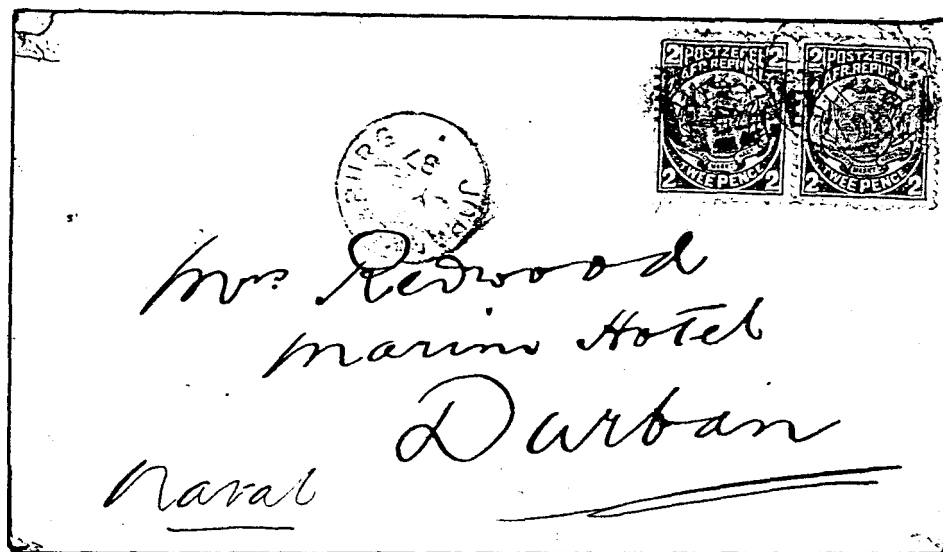 2 POSTZEGEL 2
AFR. REPUBL
TWEE PENCE
2 2
2 POSTZEGEL 2
AFR. REPUBL
TWEE PENCE
2 2
87
Mrs Redwood
Marine Hotel
Durban
Natal